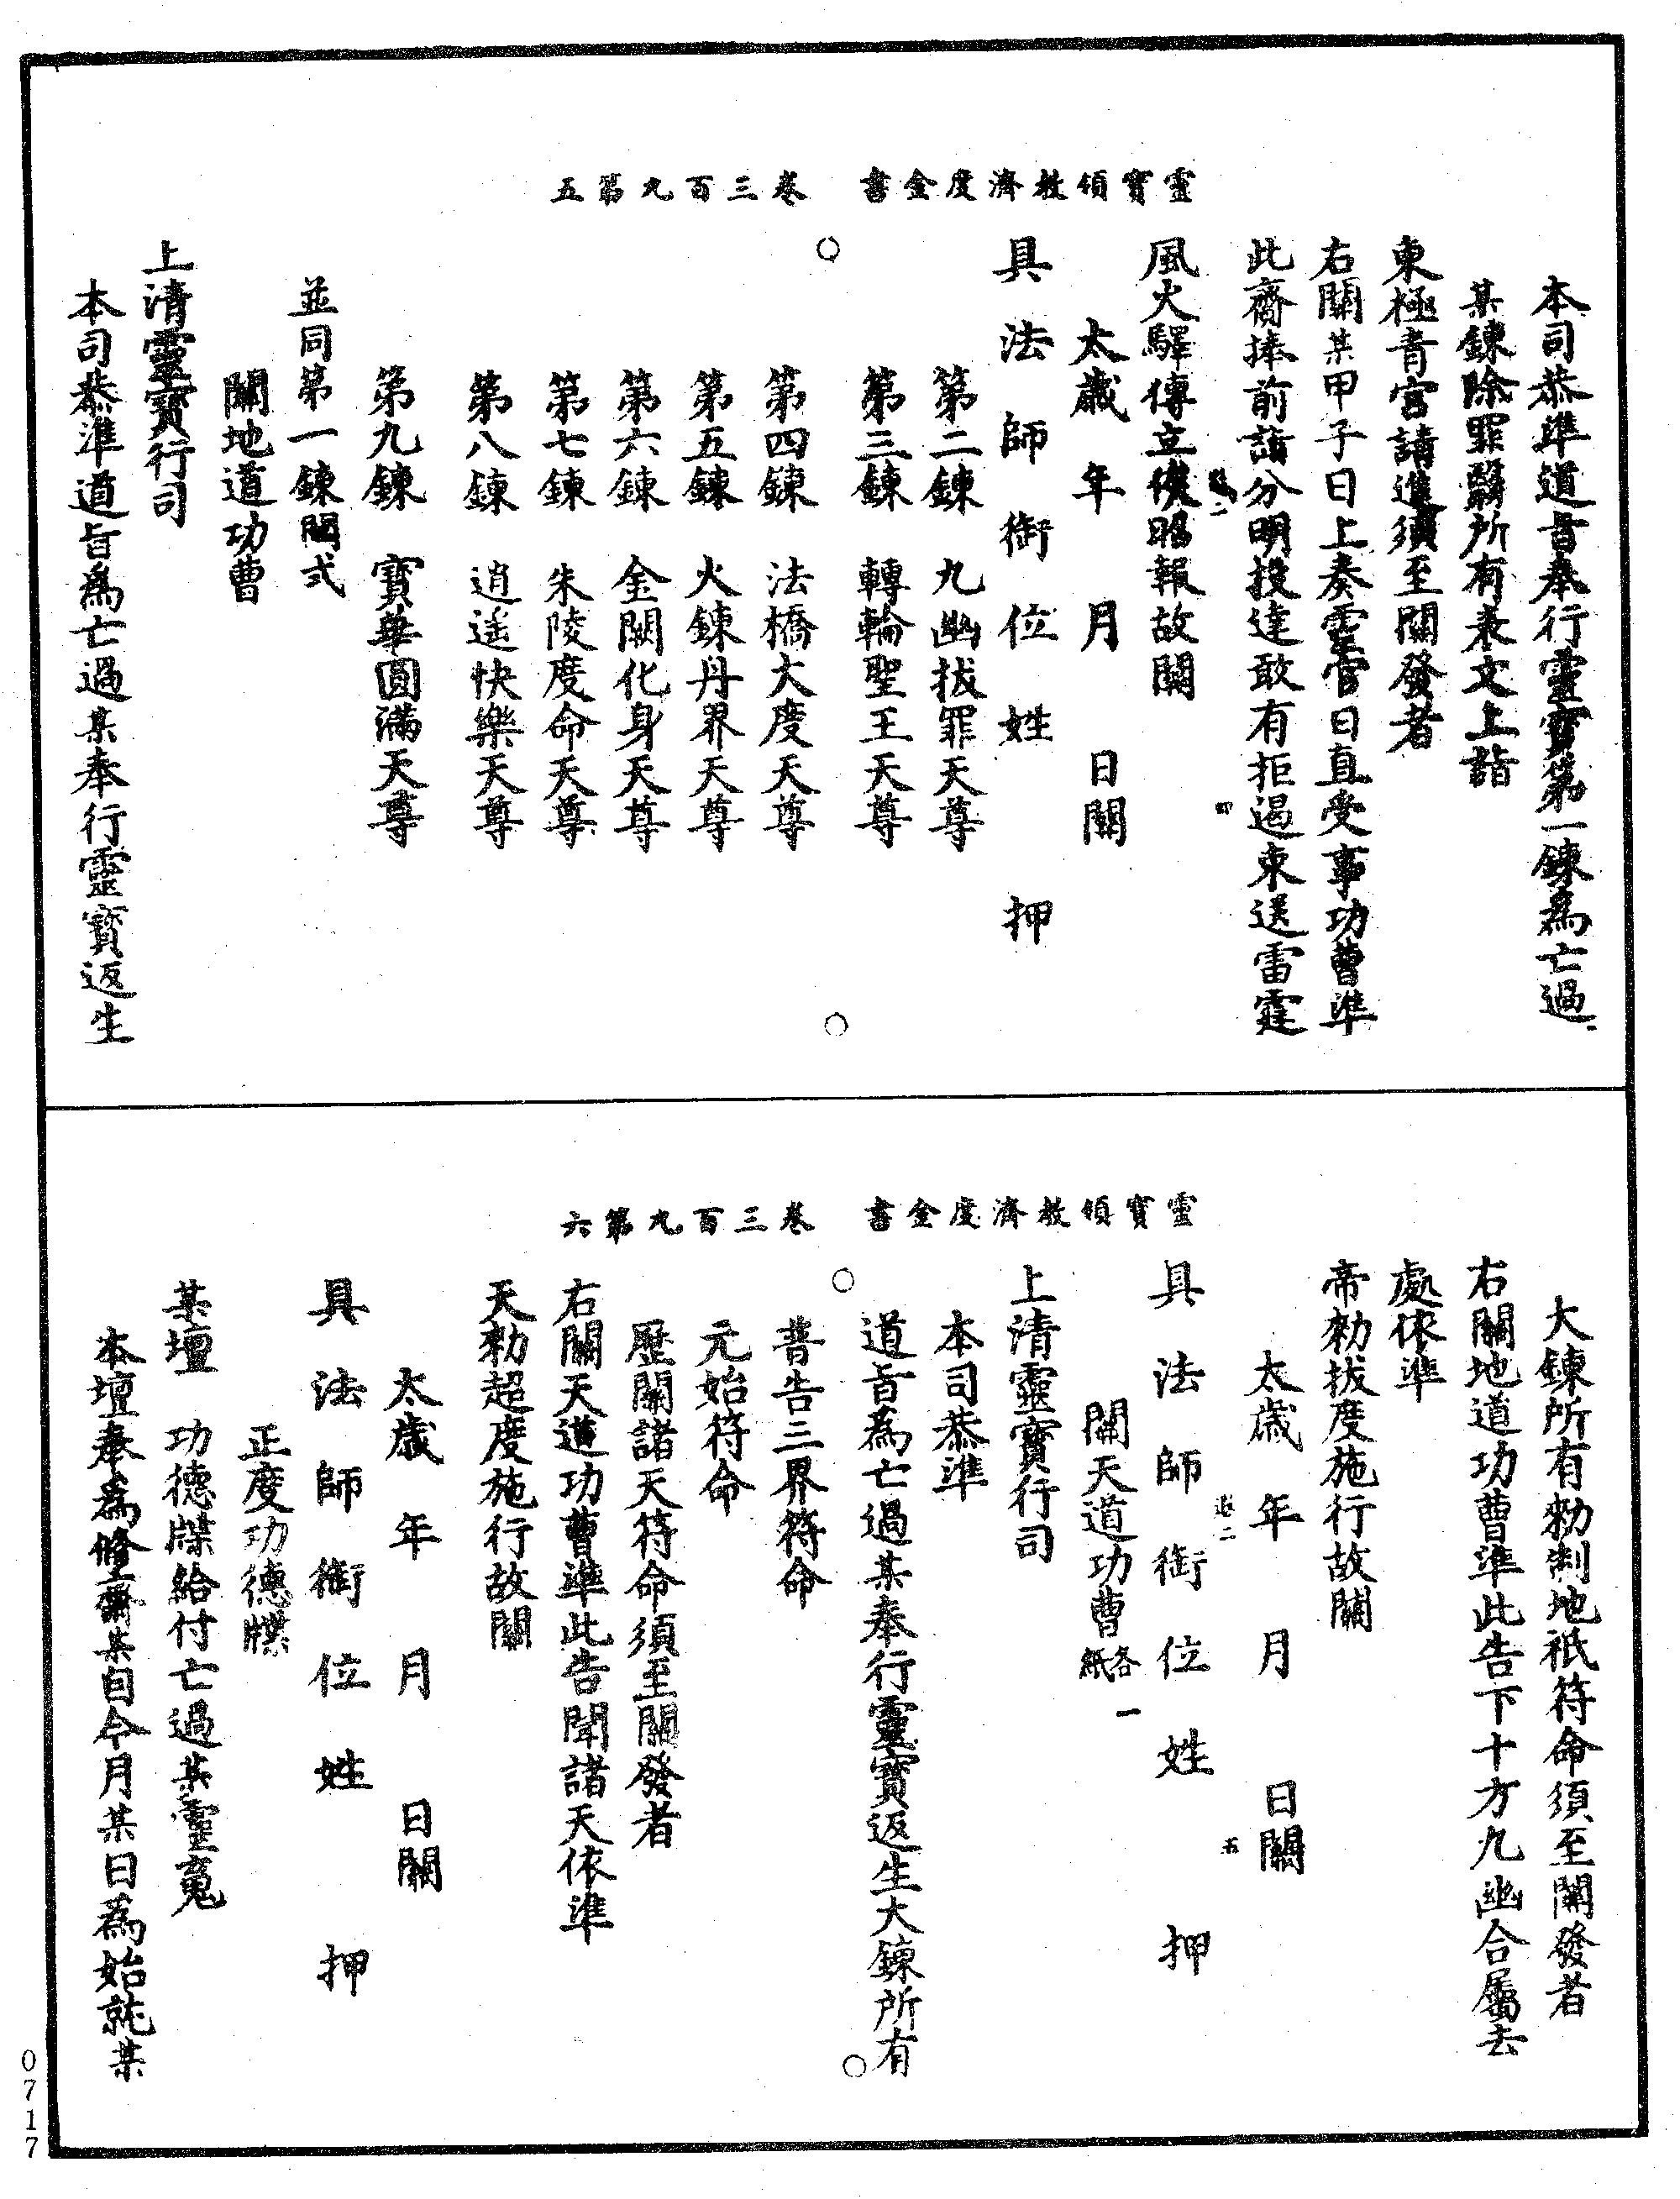 靈寶領教濟度金書　卷三百九第五
本司恭準道旨奉行靈寶第一鍊為亡過
某鍊除罪翳所有表文上詣
東極青宮請進須至關發者
右關某甲子日上奏靈官日直受事功曹準
此齎捧前詣分明投達敢有拒遏束送雷霆
風火驛傳立俟昭報故關
太歲　年　月　日關
具法師銜位姓　押
第二鍊　九幽拔罪天尊
第三鍊　轉輪聖王天尊
第四鍊　法橋大度天尊
第五鍊　火鍊丹界天尊
第六鍊　金闕化身天尊
第七鍊　朱陵度命天尊
第八鍊　逍遙快樂天尊
第九鍊　寶華圓滿天尊
並同第一鍊關式
關地道功曹
上清靈寶行司
本司恭準道旨為亡過某奉行靈寶返生
靈寶領教濟度金書　卷三百九第六
大鍊所有勑制地祇符命須至關發者
右關地道功曹準此告下十方九幽合屬去
處依準
帝勑拔度施行故關
太歲　年　月　日關
五
具法師銜位姓　押
關天道功曹各一紙
上清靈寶行司
本司恭準
道旨為亡過某奉行靈寶返生大鍊所有
普告三界符命
元始符命
歷關諸天符命須至關發者
右關天道功曹準此告聞諸天依準
天勑超度施行故關
太歲　年　月　日關
具法師銜位姓　押
正度功德牒
某壇　功德牒給付亡過某靈魂
本壇奉為修齋某自今月某日為始就某
0717